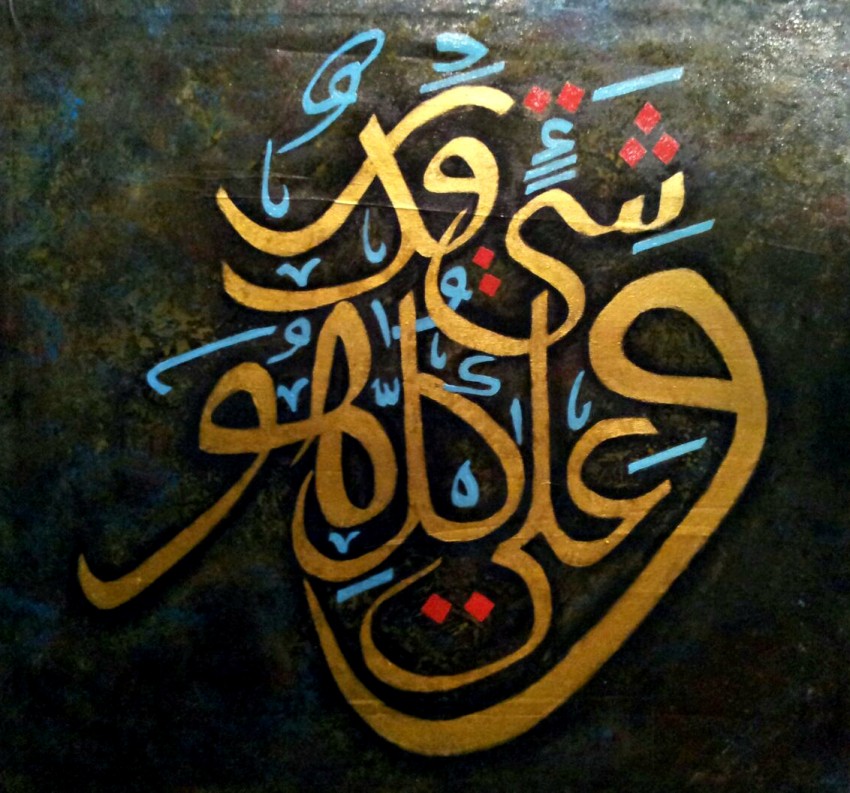 وَهُوَ عَلَى كُلِّ شَيْءٍ قَدِيرٌ